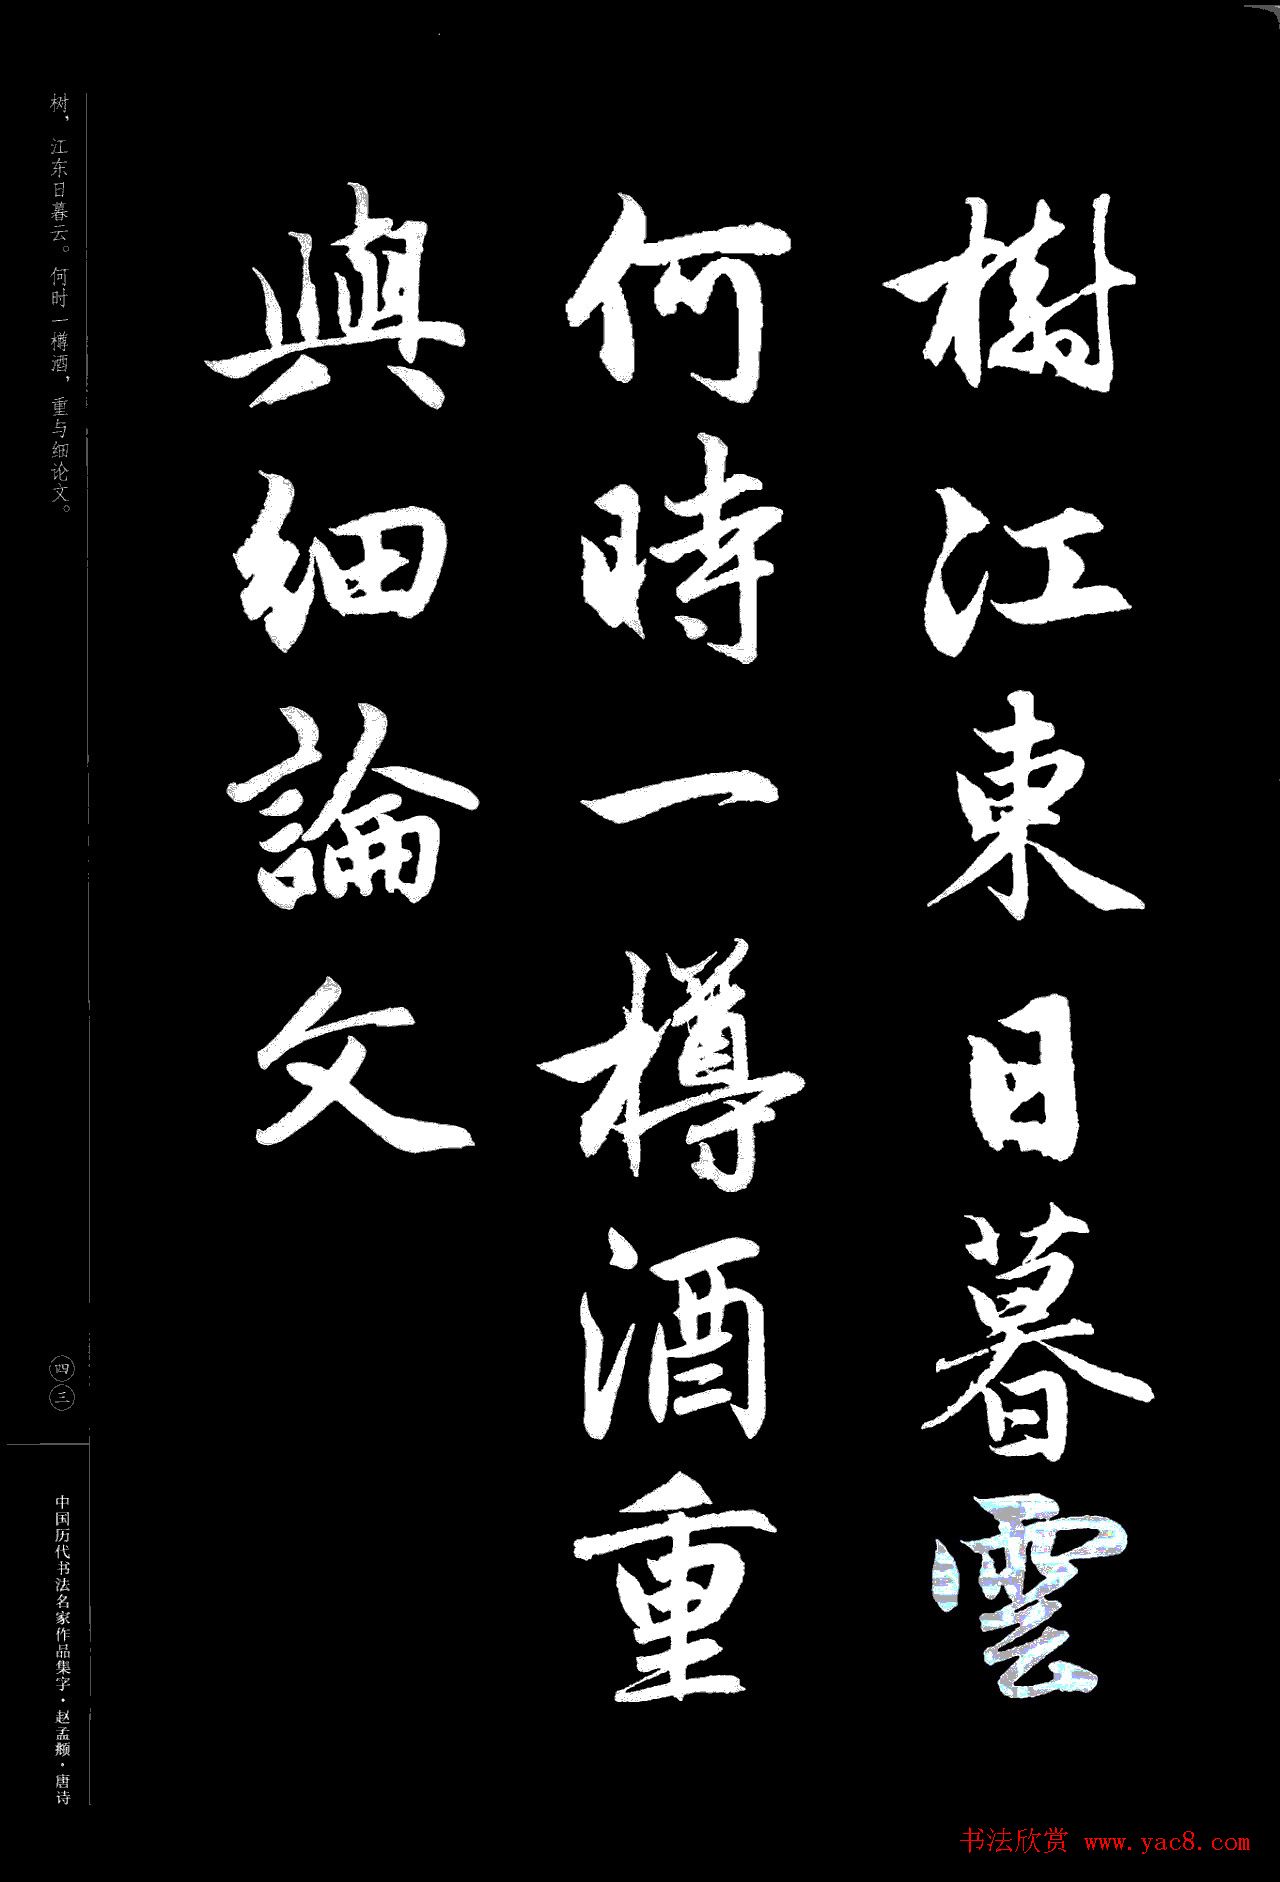 樹江東日暮雲
何時一樽酒重
與細論文
树，江东日暮云。何时一樽酒，重与细论文。
四三
中国历代书法名家作品集字·赵孟頫·唐诗
书法欣赏 www.yac8.com